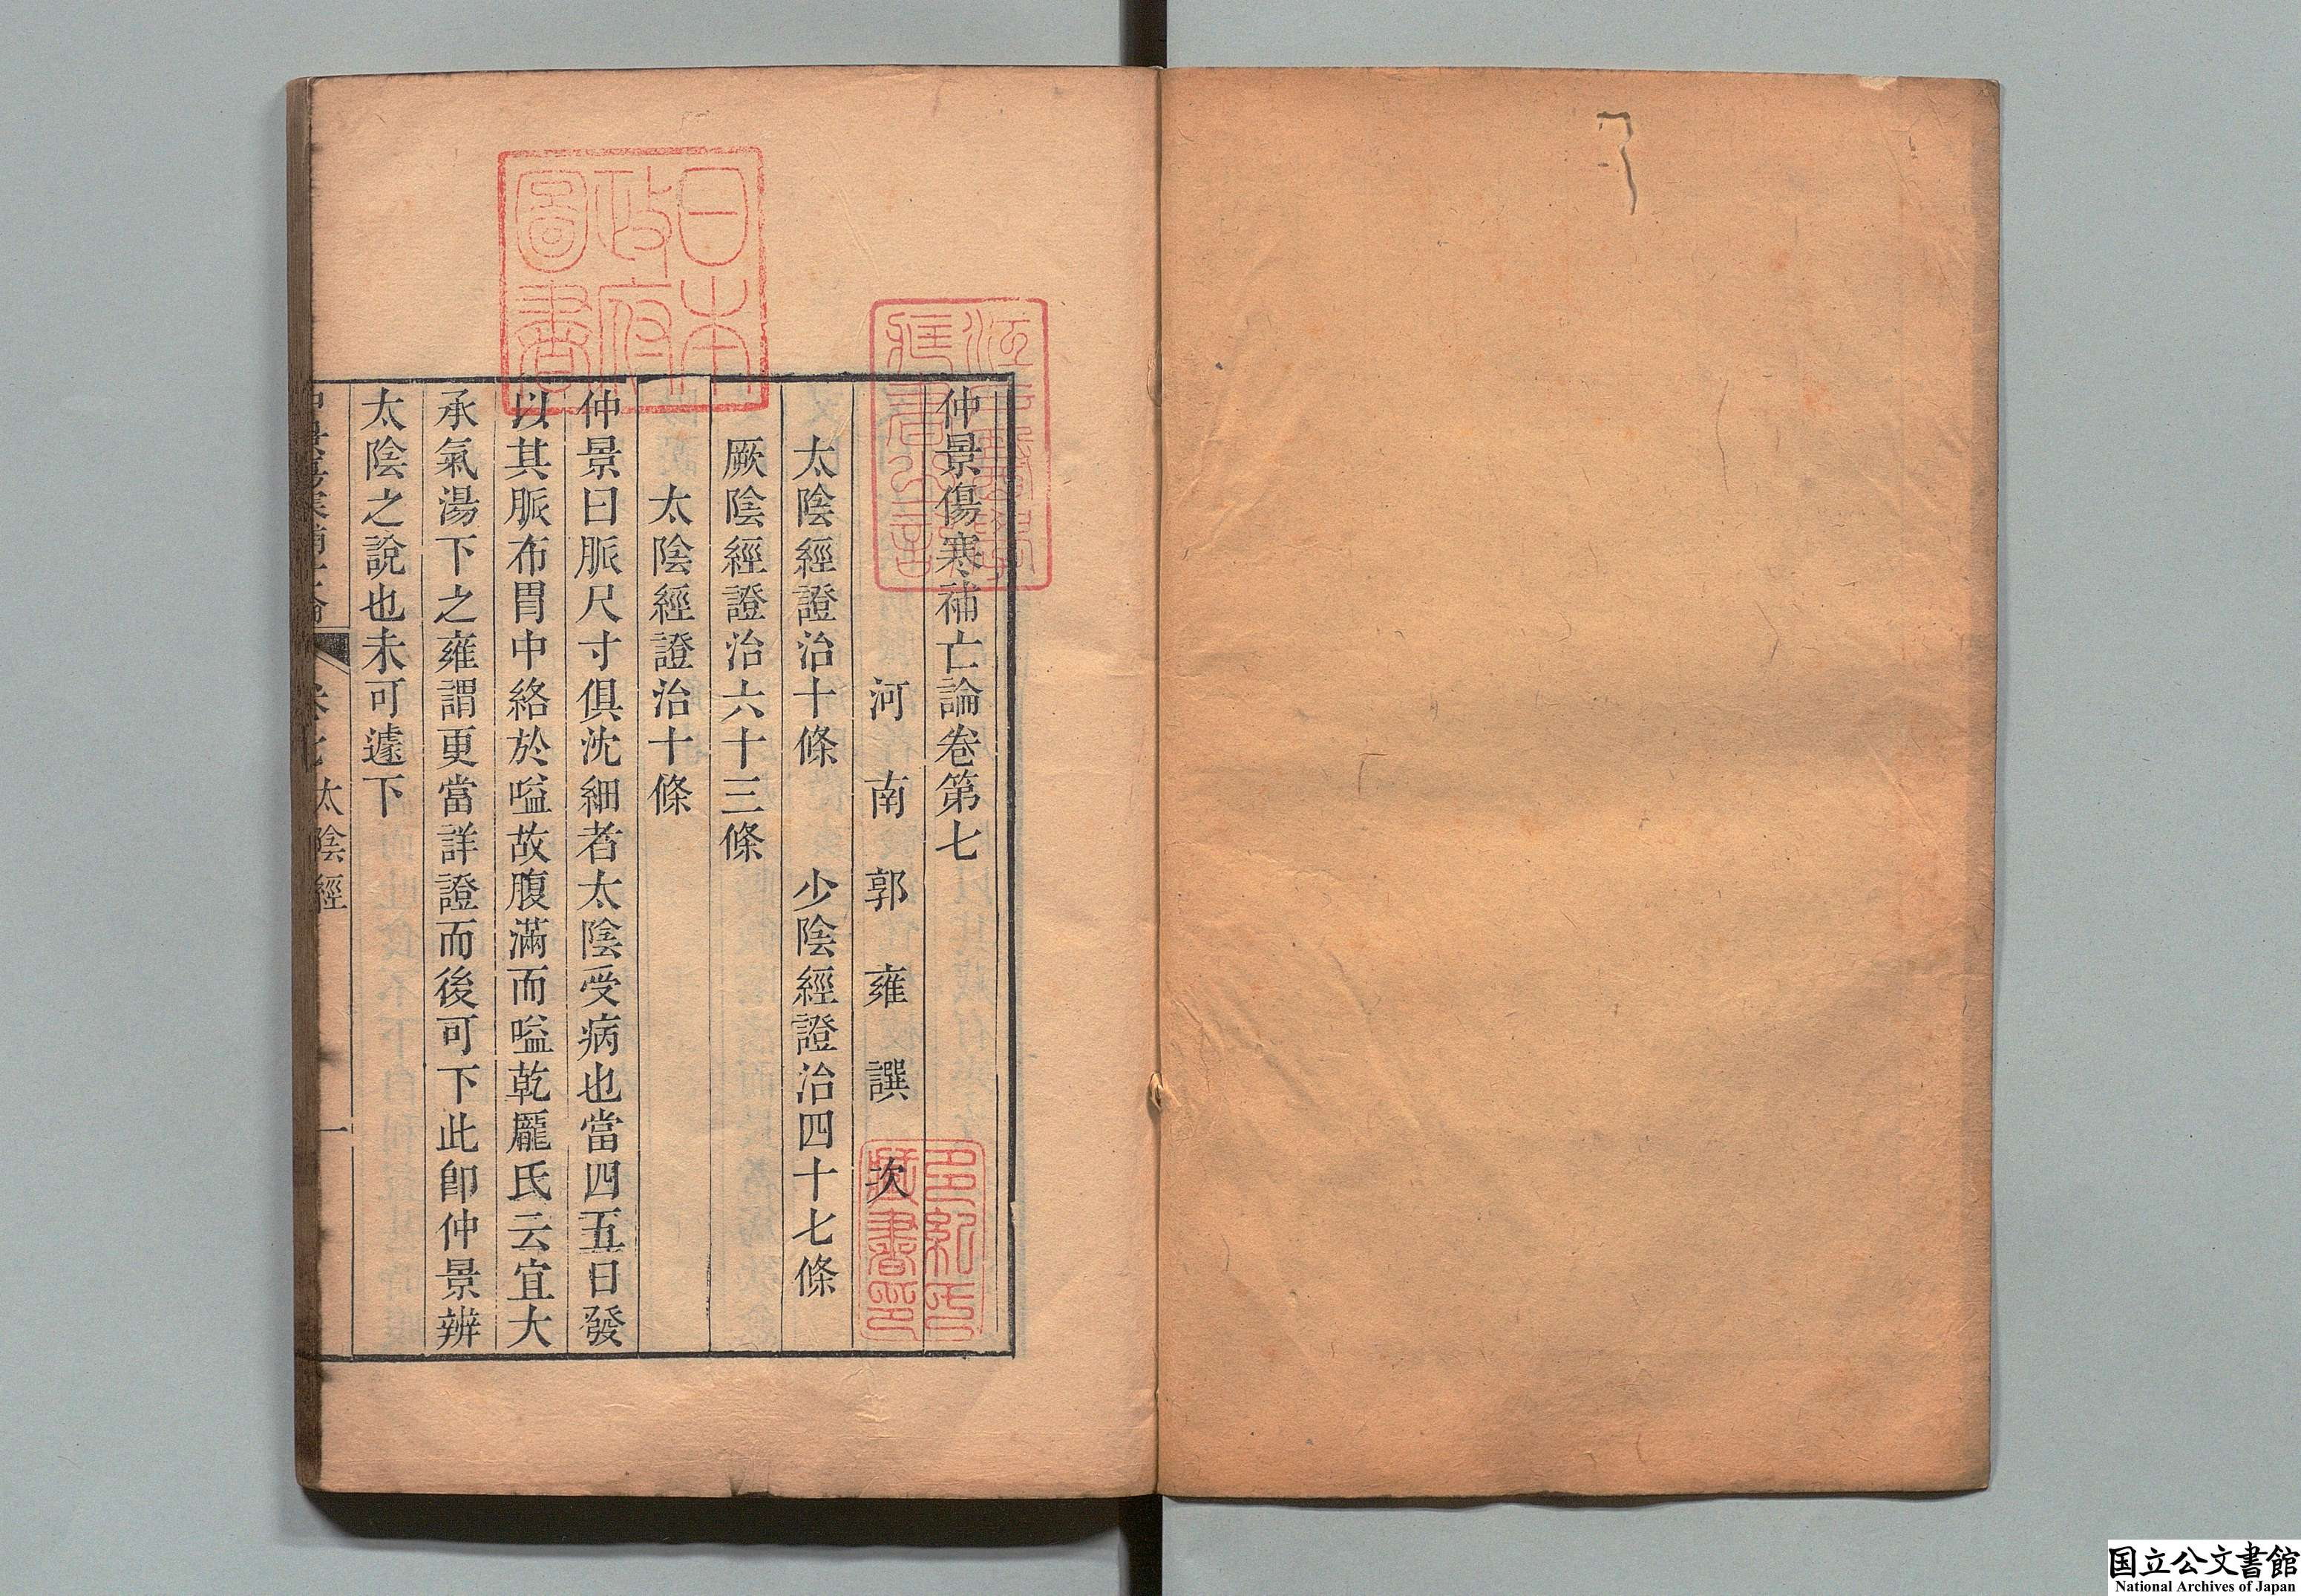 仲景傷寒補亡論卷第七
河南郭雍譔次
太陰經證治十條　少陰經證治四十七條
厥陰經證治六十三條
太陰經證治十條
仲景曰脈尺寸俱沈細者太陰受病也當四五日發
以其脈布胃中絡於嗌故腹滿而嗌乾龐氏云宜大
承氣湯下之雍謂更當詳證而後可下此卽仲景辨
太陰之說也未可遽下
仲景傷寒補亡論　卷七　太陰經　一
日本政府圖書
多紀氏藏書印
国立公文書館
National Archives of Japan